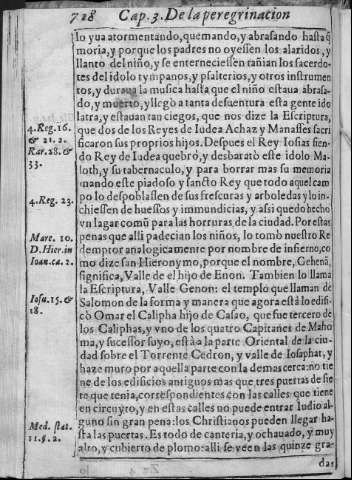 718 Cap. 3. De la peregrinacion
lo yua atormentando, quemando, y abrasando hasta q̃
moria, y porque los padres no oyessen los alaridos, y
llanto del niño, y se enterneciessen tañian los sacerdo-
tes del idolo tympanos, y psalterios, y otros instrumen
tos, y duraua la musica hasta que el niño estaua abrasa-
do, y muerto, y llegò a tanta desuentura esta gente ido
latra, y estauan tan ciegos, que nos dize la Escriptura,
4. Reg. 16.
& 21. 2.
Rar. 28. &
33.
que dos de los Reyes de Iudea Achaz y Manasses sacri
ficaron sus proprios hijos. Despues el Rey Iosias sien-
do Rey de Iudea quebrò, y desbaratò este idolo Ma-
loth, y su tabernaculo, y para borrar mas su memoria
mando este piadoso y sancto Rey que todo aquel cam
po lo despoblassen de sus frescuras y arboledas y lo hin-
4. Reg. 23.
chiessen de huessos y immundicias, y assi quedo hecho
vn lagar comũ para las horruras de la ciudad. Por estas
penas que alli padecian los niños, lo tomò nuestro Re
Marc. 10.
D. Hier. in
Ioan. ca. 2.
demptor analogicamente por nombre de infierno, co
mo dize san Hieronymo, porque el nombre, Gehenã,
significa, Valle de el hijo de Enon. Tambien lo llama
la Escriptura, Valle Genon: el templo que llaman de
Iosu. 15. &
18.
Salomon de la forma y manera que agora està lo edifi-
cò Omar el Calipha hijo de Cafao, que fue tercero de
los Caliphas, y vno de los quatro Capitanes de Maho
ma, y sucessor suyo, està a la parte Oriental de la ciu-
dad sobre el Torrente Cedron, y valle de Iosaphat, y
haze muro por aquella parte con la demas cerca: no tie
ne de los edificios antiguos mas que tres puertas de sie
te que tenia, correspondientes con las calles que tiene
en circuyto, y en estas calles no puede entrar Iudio al-
guno sin gran pena: los Christianos pueden llegar ha-
Med. stat.
11. §. 2.
sta las puertas. Es todo de canteria, y ochauado, y muy
alto, y cubierto de plomo: alli se veen las quinze gra-
das